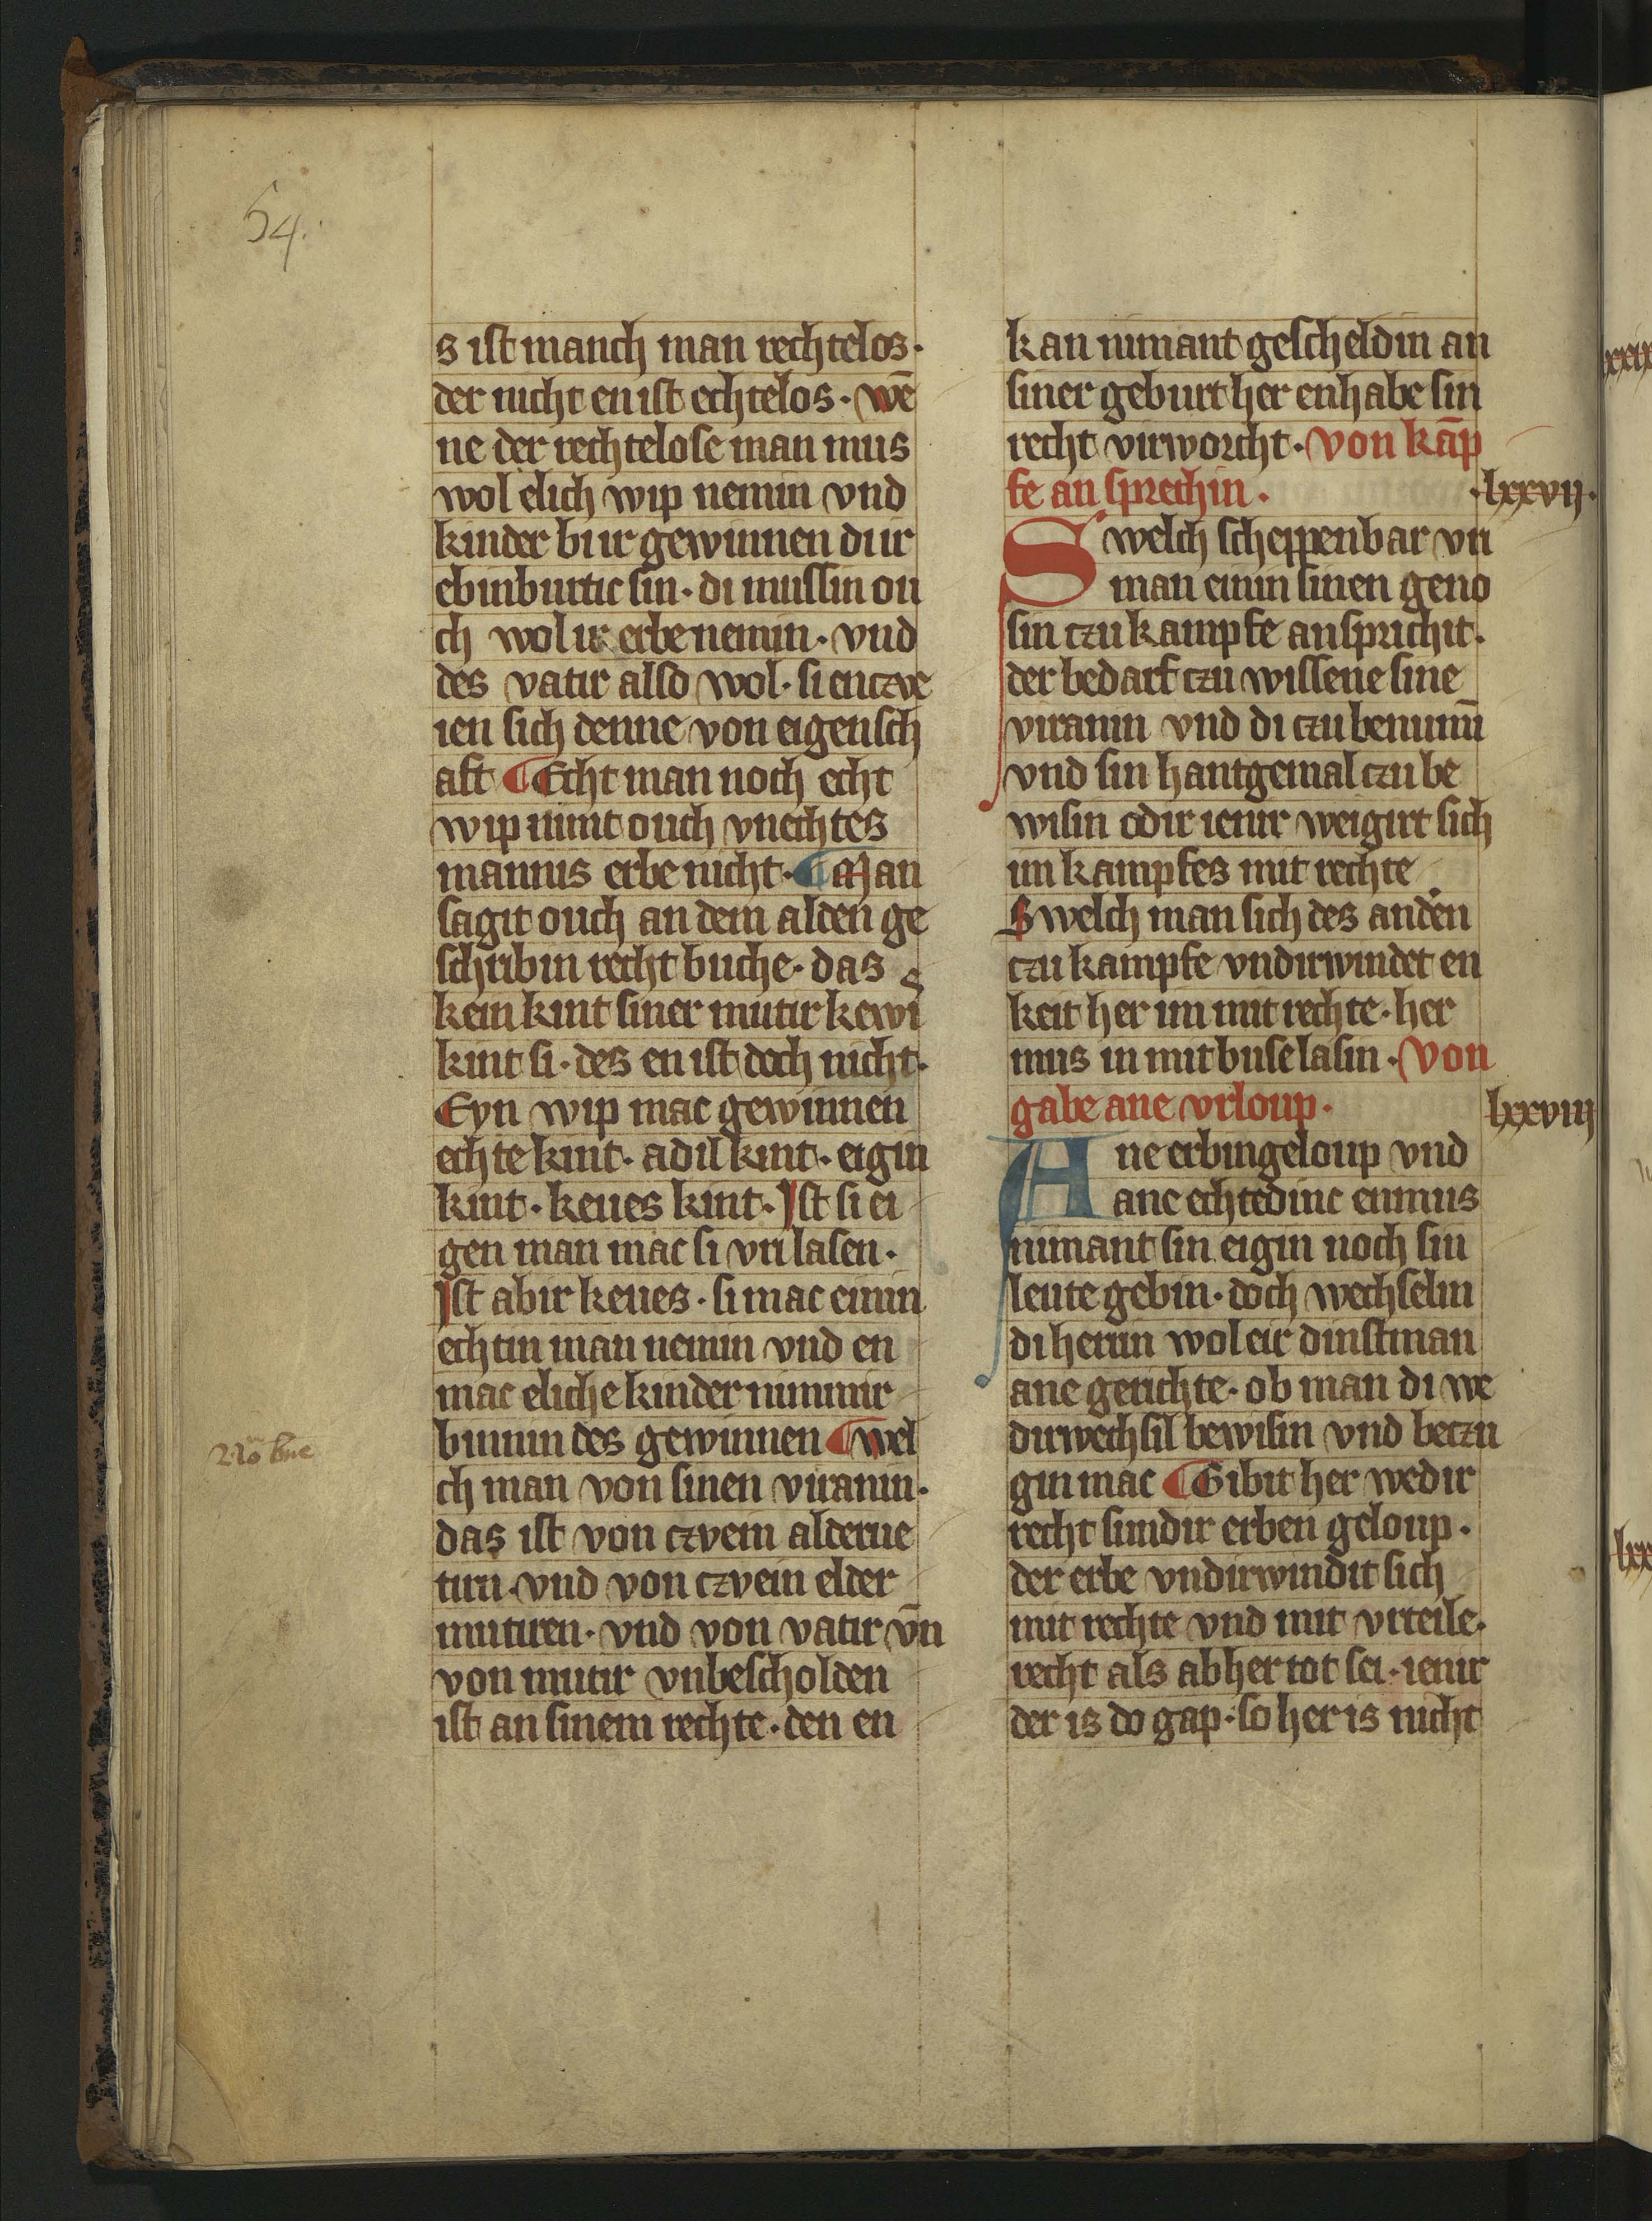 54.
s ist manch man rechtelos·
der nicht en ist echtelos· wē
ne der rechtelose man mus
wol elich wip nemin vnd
kinder bi ir gewinnen di ir
ebinburtic sin· di mussin ou
ch wol ir erbe nemin· vnd
des vatir also wol· si enczve
ien sich denne von eigensch
aft ¶ Echt man noch echt
wip nimt ouch vnechtes
mannis erbe nicht· ¶ Man
sagit ouch an dem alden ge
schribin recht buche· das
kein kint siner mutir kewi s
kint si· des en ist doch nicht·
Eyn wip mac gewinnen
echte kint· adil kint· eigin
kint· keues kint· Ist si ei
gen man mac si vri lasen·
Ist abir keues· si mac einin
echtin man nemin vnd en
mac eliche kinder nimmir
binnin des gewinnen ¶ wel
ch man von sinen viranin·
das ist von czvein alderue
tirn· vnd von czvein elder
mutiren· vnd von vatir vn̄
von mutir vnbescholden
ist an sinem rechte· den en
kan nimant gescheldin an
siner geburt her enhabe sin
recht virworcht· von kāp
fe an sprechin·
·lxxvij·
Swelch scheppenbar vri
man einin sinen geno
sin czu kampfe ansprichit·
der bedarf czu wissene sine
viranin vnd di czu beninnī
vnd sin hantgemal czu be
wisin odir ienir weigirt sich
im kampfes mit rechte
Swelch man sich des anden
czu kampfe vndirwindet en
keit her im mit rechte· her
mus in mit buse lasin· Von
gabe ane vrloup·
lxxviij
Ane erbin geloup vnd
ane echte dinc enmus
nimant sin eigin noch sin
leute gebin· doch wechselin
di herrin wol eir dinstman
ane gerichte· ob man di we
dirwechsil bewisin vnd beczu
gin mac ¶ Gibit her wedir
recht sundir erben geloup·
der erbe vndirwindit sich
mit rechte vnd mit vrteile·
recht als ab her tot sei· ienir
der is do gap· so her is nicht